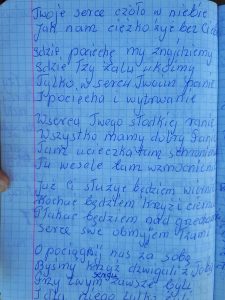 Twoje serce czoło w niebie
Jak nam ciężko żyć bez Ciebie
gdzie pociechę my znajdziemy
Gdzie łzy żalu ukoimy
Tylko w sercu Twoim panie
I pociecha i wytrwanie
W sercu Twego słodkiej ranie
Wszystko mamy dobry Panie
Tam ucieczka tam schronienie
Tu wesele tam wzmocnienie
Już Ci służyć będziem wiernie
Kochać będziem krzyż i ciernie
Płakać będziem nad grzechami
Serce swe obmyjem łzami
O pociągnij nas za sobą
Byśmy krzyż dźwigali z Tobą
Przy Twym sercu zawsze byli